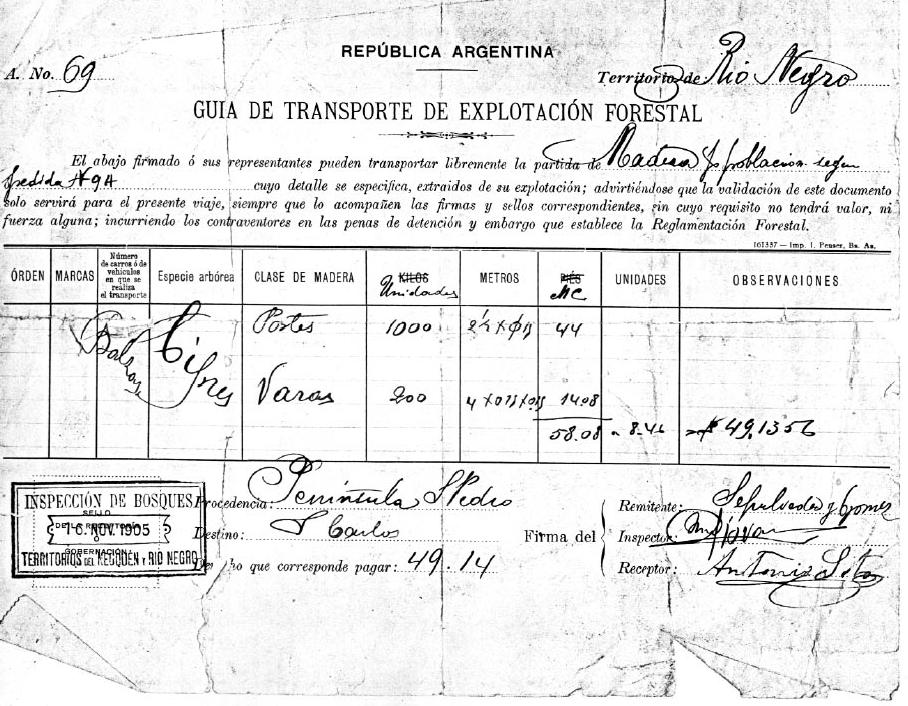 REPÚBLICA ARGENTINA
A. No. 69
Territorio de Rio Negro
GUIA DE TRANSPORTE DE EXPLOTACIÓN FORESTAL
El abajo firmado ó sus representantes pueden transportar libremente la partida de Madera población segun
pedida cuyo detalle se especifica, extraidos de su explotación; advirtiéndose que la validación de este documento
solo servirá para el presente viaje, siempre que lo acompañen las firmas y sellos correspondientes, sin cuyo requisito no tendrá valor, ni
fuerza alguna; incurriendo los contraventores en las penas de detención y embargo que establece la Reglamentación Forestal.
161337 — Imp. J. Peuser, Bs. As.
ÓRDEN MARCAS Número de carros ó de vehículos en que se realiza el transporte Especie arbórea CLASE DE MADERA KILOS Unidades METROS PIÉS MC UNIDADES OBSERVACIONES
Balsas Cipres Postes 1000 44
Varas 200 14.08
58.08 a 8.46 $ 49.1356
INSPECCIÓN DE BOSQUES
SELLO
16. NOV. 1905
GOBERNACIÓN
TERRITORIOS DEL NEUQUÉN Y RIO NEGRO
Procedencia: Península S Pedro
Destino: S Carlos
que corresponde pagar: 49.14
Firma del
Remitente: Sepulveda y Gomez
Inspector:
Receptor: Antonio Soto